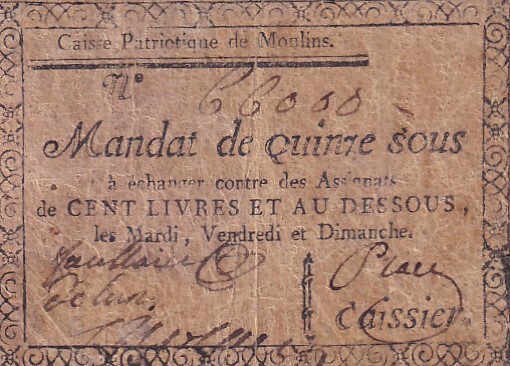 Caisse Patriotique de Moulins.
N°
Mandat de Quinze sous
à échanger contre des Assignats
de CENT LIVRES ET AU DESSOUS,
les Mardi, Vendredi et Dimanche.
Caissier